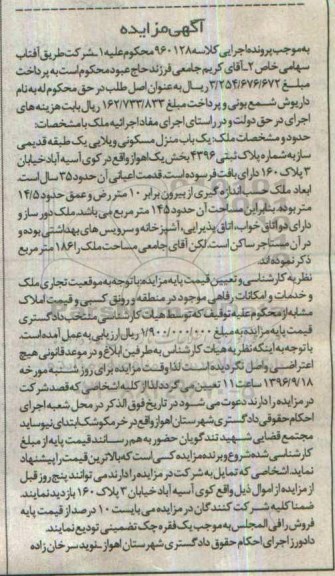 آگهی مزایده
به موجب پرونده اجرایی کلاسه ۹۶۰۱۲۸ محکوم علیه ۱ـ شرکت طریق آفتاب
سهامی خاص ۲ـ آقای کریم جامعی فرزند حاج عبود محکوم است به پرداخت
مبلغ ۳/۲۵۴/۶۷۶/۶۷۲ ریال به عنوان اصل طلب در حق محکوم له به نام
داریوش شمع بونی و پرداخت مبلغ ۱۶۲/۷۳۳/۸۳۳ ریال بابت هزینه های
اجرای در حق دولت و در راستای اجرای مفاد اجرائیه ملک با مشخصات:
حدود و مشخصات ملک: یک باب منزل مسکونی ویلایی یک طبقه قدیمی
ساز به شماره پلاک ثبتی ۴۳۹۶ بخش یک اهواز واقع در کوی آسیه آباد خیابان
۳ پلاک ۱۶۰ دارای بافت فرسوده است. قدمت اعیانی آن حدود ۳۵ سال است.
ابعاد ملک حسب اندازه گیری از بیرون برابر ۱۰ متر رض و عمق حدود ۱۴/۵
متر بوده. بنابراین مساحت آن حدود ۱۴۵ متر مربع می باشد. ملک دور ساز و
دارای دو اتاق خواب، اتاق پذیرایی، آشپزخانه و سرویس های بهداشتی بوده و
در آن مستاجر ساکن است. لکن آقای جامعی مساحت ملک را ۱۸۶۱ متر مربع
ذکر نموده اند.
نظریه کارشناسی و تعیین قیمت پایه مزایده: با توجه به موقعیت تجاری ملک
و خدمات و امکانات رفاهی موجود در منطقه و رونق کسبی و قیمت املاک
مشابه از محکوم علیه توقیف که توسط هیات کارشناسی منتخب دادگستری
قیمت پایه مزایده به مبلغ ۱/۹۰۰/۰۰۰/۰۰۰ ریال ارزیابی به عمل آمده است.
با توجه به اینکه نظریه هیات کارشناسی به طرفین ابلاغ و در موعد قانونی هیچ
اعتراضی واصل نگردیده است. لذا وقت مزایده برای روز شنبه مورخه
۱۳۹۶/۹/۱۸ ساعت ۱۱ تعیین می گردد لذا از کلیه اشخاصی که قصد شرکت
در مزایده را دارند دعوت می شود در تاریخ فوق الذکر در محل شعبه اجرای
احکام حقوقی دادگستری شهرستان اهواز واقع در خرمکوشک ابتدای نیوساید
مجتمع قضایی شهید تندگویان حضور به هم رسانند قیمت پایه از مبلغ
کارشناسی شده شروع و برنده مزایده کسی است که بالاترین قیمت را پیشنهاد
نماید. اشخاصی که تمایل به شرکت در مزایده را دارند می توانند پنج روز قبل
از مزایده از اموال ذیل واقع کوی آسیه آباد خیابان ۳ پلاک ۱۶۰ بازدید نمایند.
ضمنا کلیه شرکت کنندگان در مزایده می بایست ۱۰ درصد از قیمت پایه
فروش را فی المجلس به موجب یک فقره چک تضمینی تودیع نمایند.
دادورز اجرای احکام حقوق دادگستری شهرستان اهواز ـ نوید سرخان زاده